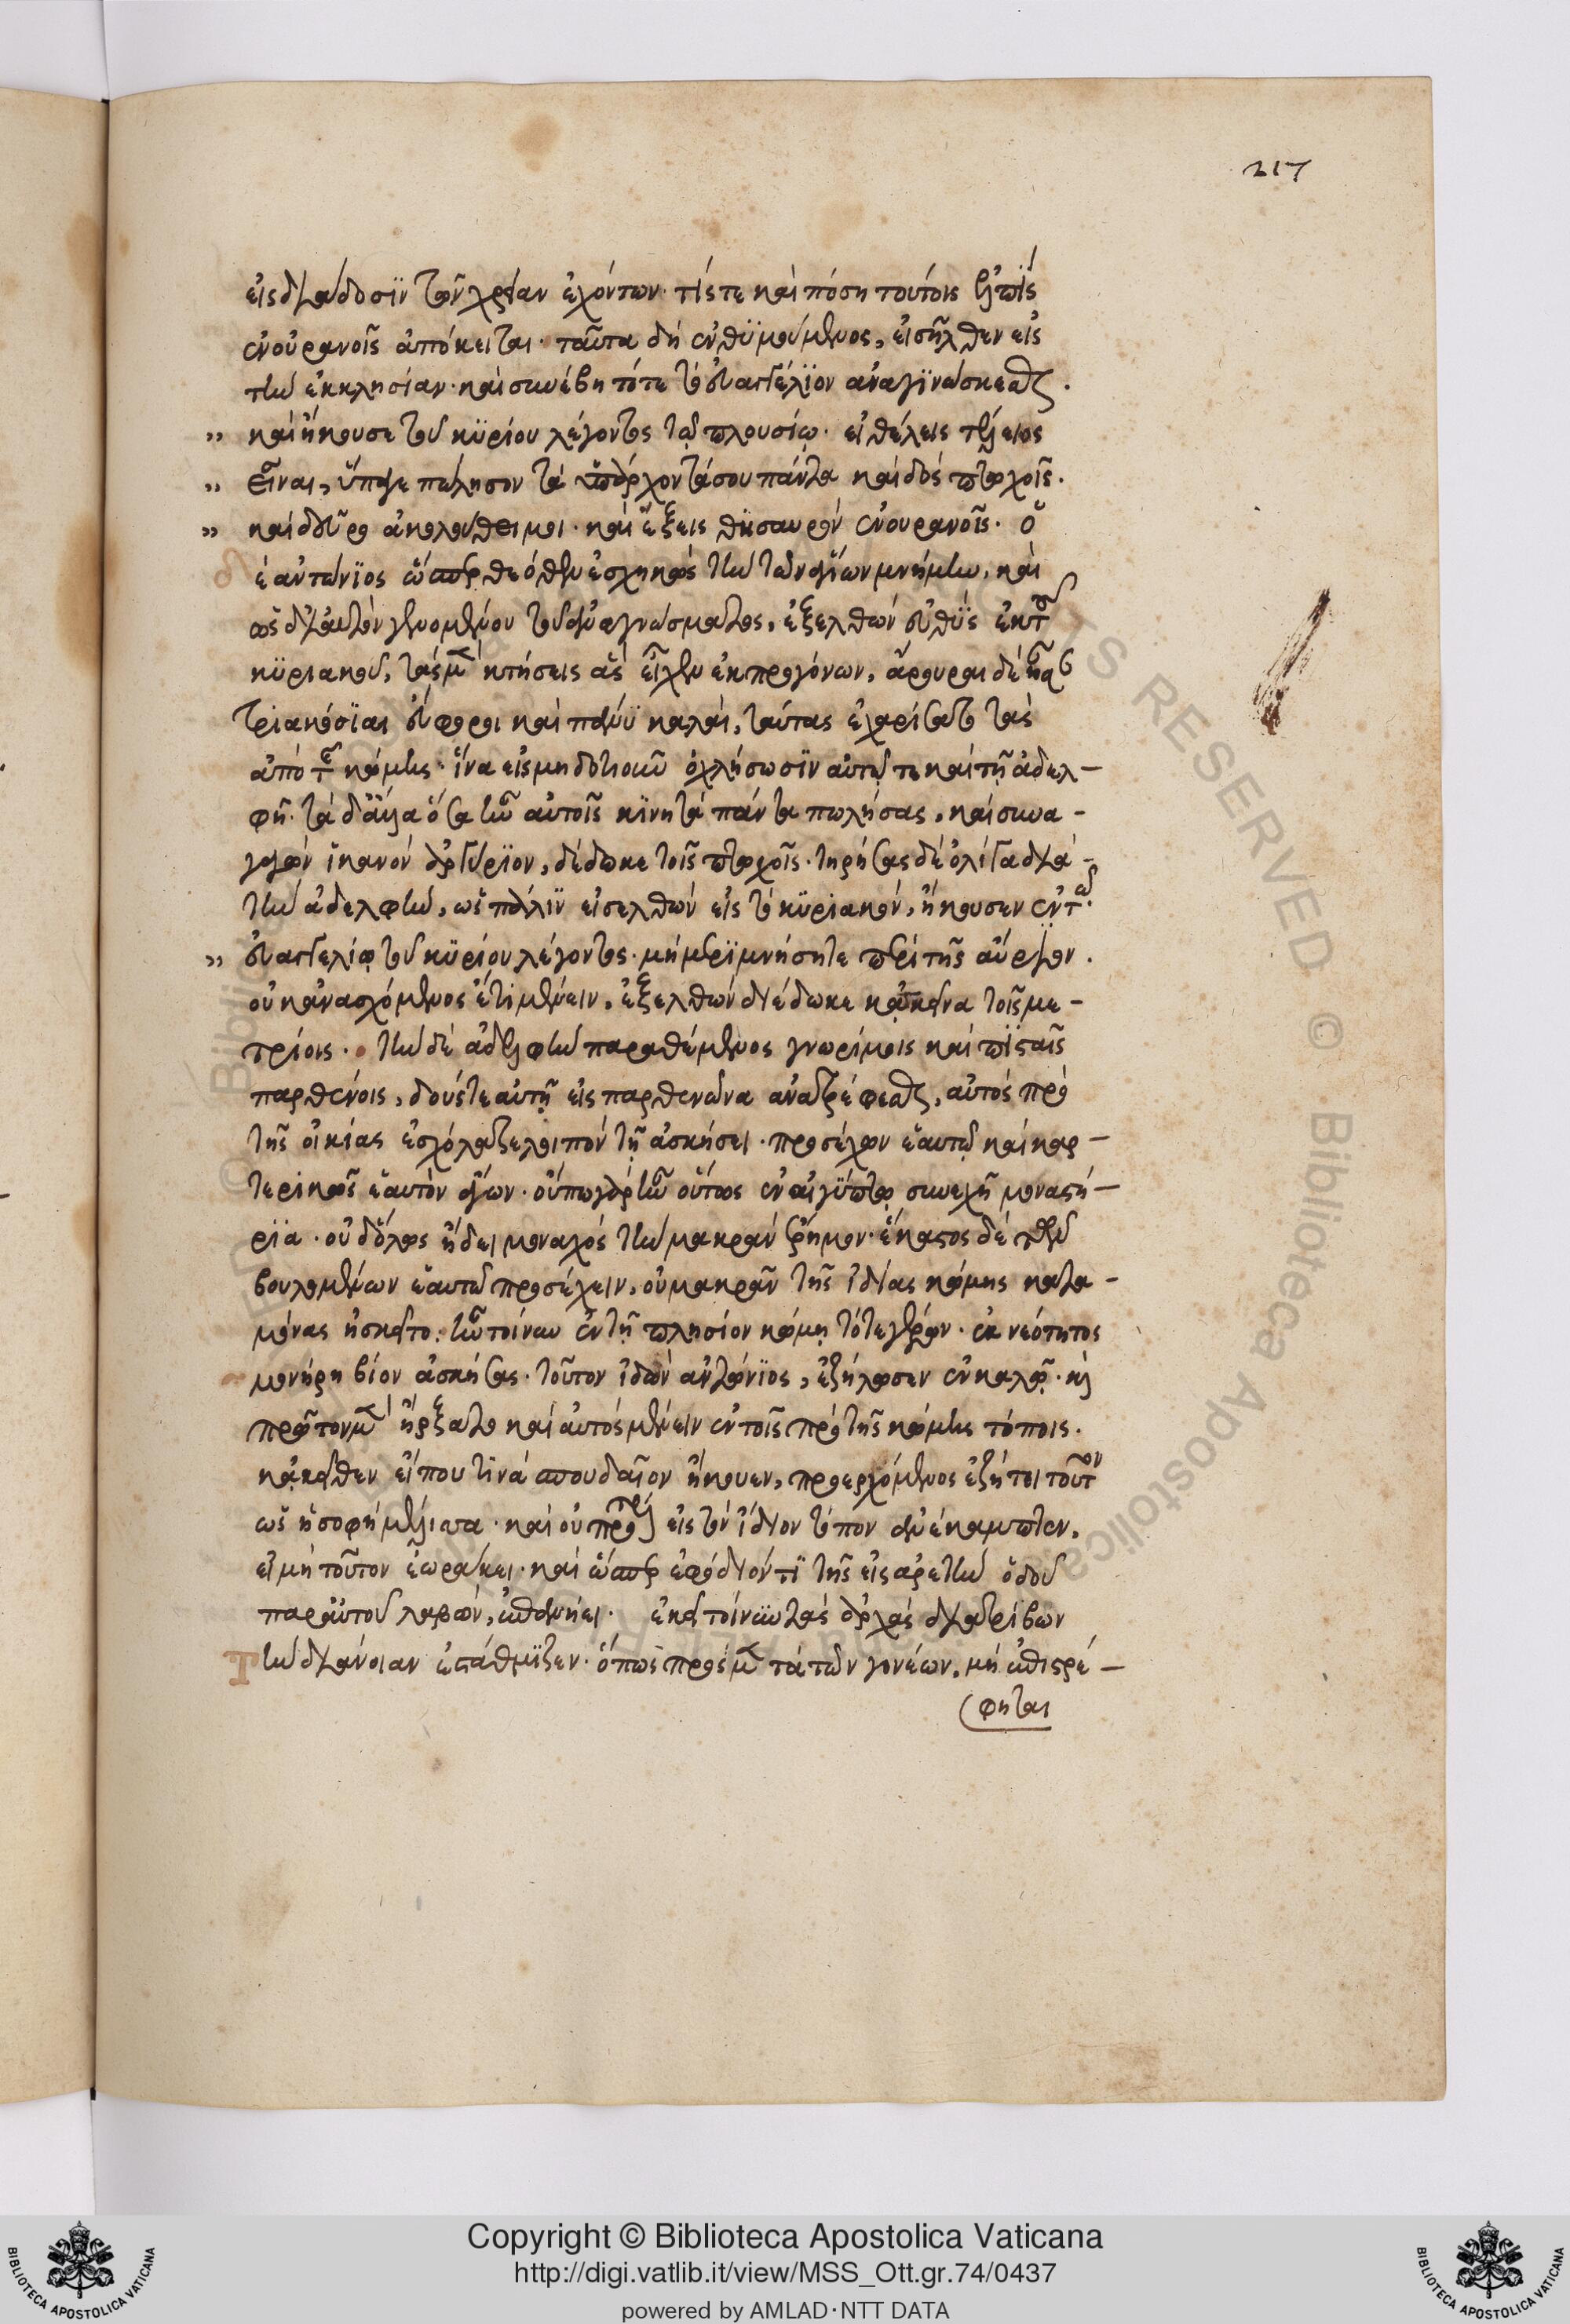 217
εἰς διάδοσϊν τῶν χρείαν ἐχόντων· τίς τε καὶ πόση τούτοις ἐλπὶς
ἐν οὐρανοῖς ἀπόκειται· ταῦτα δὴ ἐνθϋμούμενος, εἰσῆλθεν εἰς
τὴν ἐκκλησίαν· καὶ συνέβη τότε τὸ εὐαγγέλϊον ἀναγϊνώσκεσθαι.
„ καὶ ἤκουσε τοῦ κϋρίου λέγοντος τῷ πλουσίῳ· εἰ θέλεις τέλειος
„ εἶναι, ὕπαγε πώλησον τὰ ὑπάρχοντά σου πάντα καὶ δὸς πτωχοῖς.
„ καὶ δεῦρο ἀκολούθει μοι· καὶ ἕξεις θησαυρὸν ἐν οὐρανοῖς· ὁ
δὲ ἀντώνϊος ὥσπερ θεόθεν ἐσχηκὼς τὴν τῶν ἁγίων μνήμην, καὶ
ὡς δι' αὐτὸν γενομένου τοῦ ἀναγνώσματος, ἐξελθὼν εὐθὺς ἐκ τοῦ
κϋριακοῦ, τὰς μὲν κτήσεις ἃς εἶχεν ἐκ προγόνων, ἄρουραι δὲ ἦσαν
τριακόσϊαι εὔφοροι καὶ πάνϋ καλαὶ, ταύτας ἐχαρίσατο τοῖς
ἀπὸ τῆς κώμης· ἵνα εἰς μηδοτιοῦν ὀχλήσωσϊν αὐτῷ τε καὶ τῇ ἀδελ–
φῇ· τὰ δ' ἄλλα ὅσα ἦν αὐτοῖς κϊνητὰ πάντα πωλήσας, καὶ συνα-
γαγὼν ἱκανὸν ἀργύρϊον, δέδωκε τοῖς πτωχοῖς· τηρήσας δὲ ὀλίγα διὰ-
τὴν ἀδελφήν, ὡς πάλϊν εἰσελθὼν εἰς τὸ κϋριακὸν, ἤκουσεν ἐν τῷ
„ εὐαγγελίῳ τοῦ κϋρίου λέγοντος· μὴ μερϊμνήσητε περὶ τῆς αὔριον.
οὐκ ἀνασχόμενος ἔτι μένειν, ἐξελθὼν διέδωκε κἀκεῖνα τοῖς με-
τρίοις· τὴν δὲ ἀδελφὴν παραθέμενος γνωρίμοις καὶ πισταῖς
παρθένοις, δούς τε αὐτῇ εἰς παρθενῶνα ἀνατρέφεσθαι, αὐτὸς πρὸ
τῆς οἰκίας ἐσχόλαζε λοιπὸν τῇ ἀσκήσει· προσέχων ἑαυτῷ καὶ καρ–
τερικῶς ἑαυτὸν ἄγων· οὔπω γὰρ ἦν οὕτως ἐν αἰγύπτῳ συνεχῆ μοναστή–
ρϊα· οὐδ' ὅλως ᾔδει μοναχὸς τὴν μακρὰν ἔρημον· ἕκαστος δὲ τῶν
βουλομένων ἑαυτῷ προσέχειν, οὐ μακρὰν τῆς ἰδίας κώμης κατα–
μόνας ἠσκεῖτο. ἦν τοίνυν ἐν τῇ πλησίον κώμῃ τότε γέρων· ἐκ νεότητος
μονήρη βίον ἀσκήσας· τοῦτον ἰδὼν ἀντώνϊος, ἐζήλωσεν ἐν καλῷ· καὶ
πρῶτον μὲν ἤρξατο καὶ αὐτὸς μένειν ἐν τοῖς πρὸ τῆς κώμης τόποις.
κἀκεῖθεν εἴ που τϊνὰ σπουδαῖον ἤκουεν, προερχόμενος ἐζήτει τοῦτον
ὡς ἡ σοφὴ μέλισσα· καὶ οὐ πρότερον εἰς τὸν ἴδιον τόπον ἀνέκαμπτεν,
εἰ μὴ τοῦτον ἑωράκει· καὶ ὥσπερ ἐφόδιόν τϊ τῆς εἰς ἀρετὴν ὁδοῦ
παρ' αὐτοῦ λαβὼν, ἐπανῄει· ἐκεῖ τοίνϋν τὰς ἀρχὰς διατρίβων
τὴν διάνοιαν ἐστάθμϊζεν· ὅπως πρὸς μὲν τὰ τῶν γονέων, μὴ ἐπιστρέ–
φηται
Copyright © Biblioteca Apostolica Vaticana
http://digi.vatlib.it/view/MSS_Ott.gr.74/0437
powered by AMLAD·NTT DATA